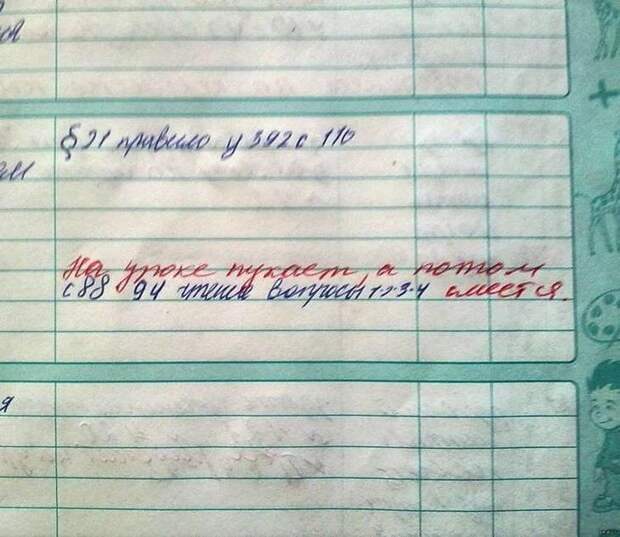 я
§ 21 правило у 392 с 110
На уроке пукает, а потом
с 88 94 чтение вопросы 1-2-3-4 смеется.
я